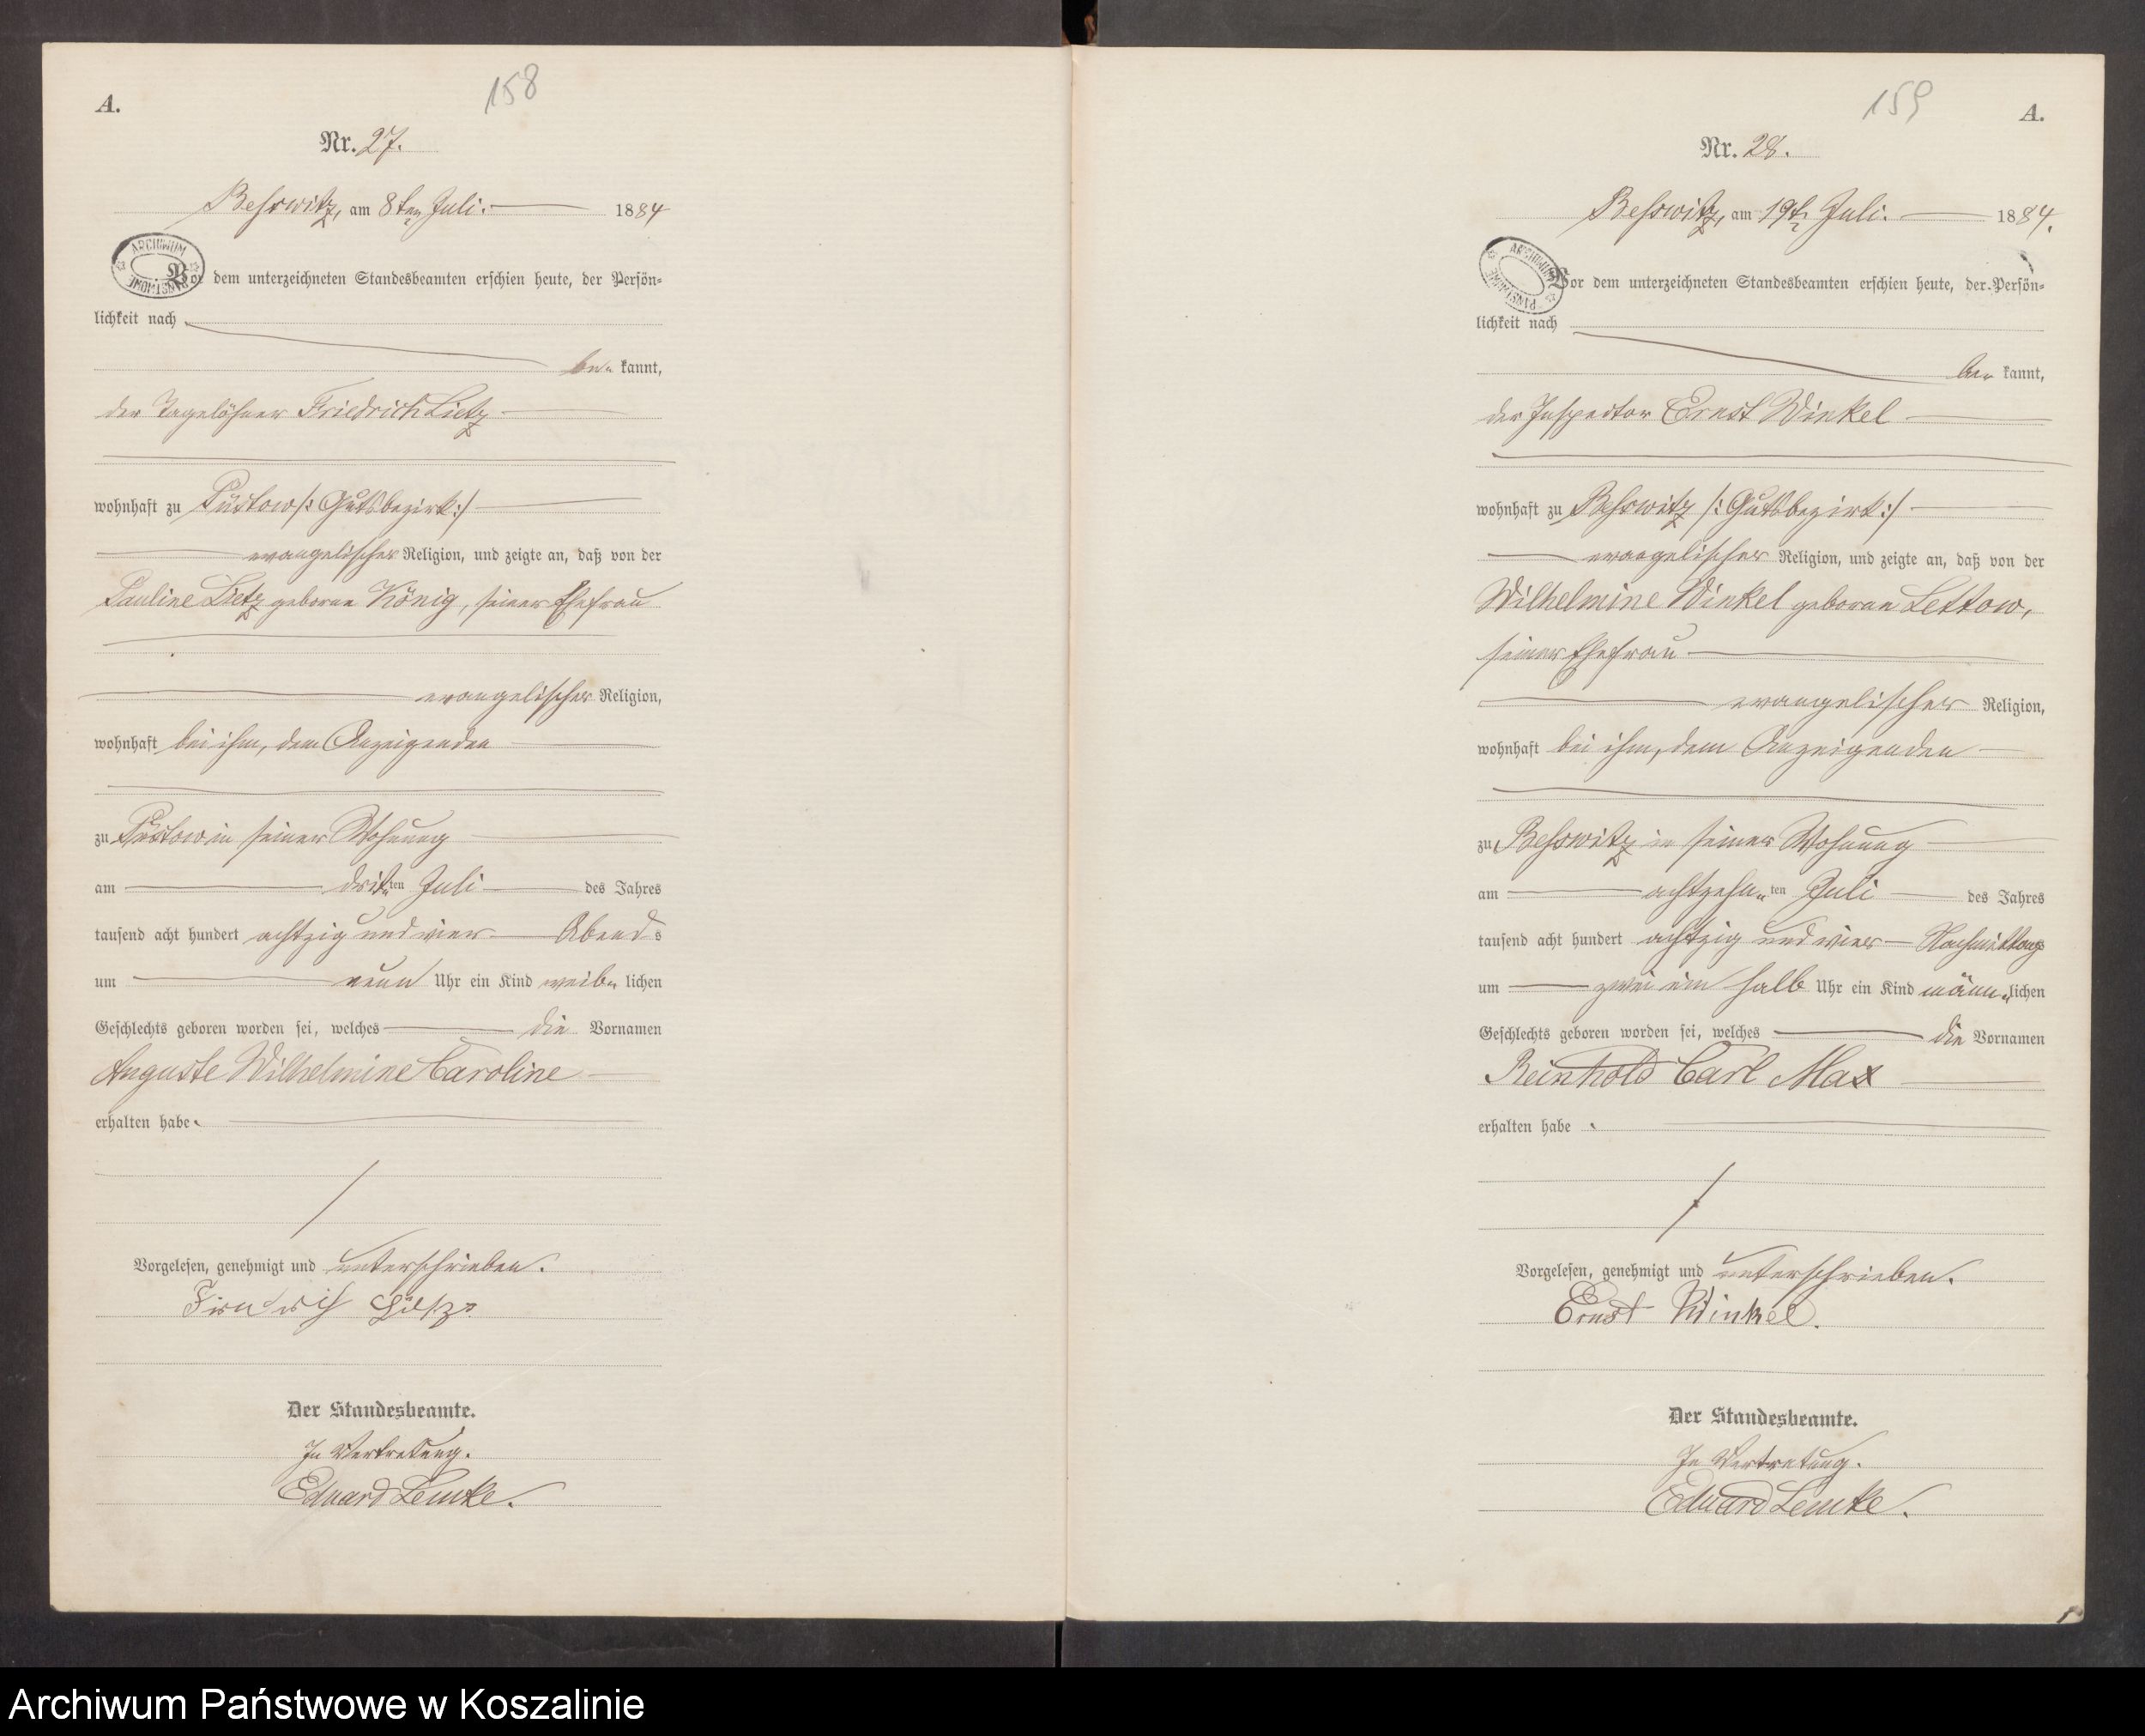 158
A.
Nr. 27.
Beßwitz, am 8ten Juli. 1884
ARCHIWUM PAŃSTWOWE
Vor dem unterzeichneten Standesbeamten erschien heute, der Persön-
lichkeit nach
be- kannt,
der Tagelöhner Friedrich Lietz
wohnhaft zu Püstow /: Gutsbezirk :/
evangelischer Religion, und zeigte an, daß von der
Pauline Lietz geborne König, seiner Ehefrau
evangelischer Religion,
wohnhaft bei ihm, dem Anzeigenden
zu Püstow in seiner Wohnung
am dritten Juli des Jahres
tausend acht hundert achtzig und vier Abends
um neun Uhr ein Kind weib- lichen
Geschlechts geboren worden sei, welches die Vornamen
Auguste Wilhelmine Caroline
erhalten habe.
Vorgelesen, genehmigt und unterschrieben.
Der Standesbeamte.
In Vertretung.
Eduard Lemke.
159
A.
Nr. 28.
Beßwitz, am 19t Juli. 1884.
ARCHIWUM PAŃSTWOWE
Vor dem unterzeichneten Standesbeamten erschien heute, der Persön-
lichkeit nach
be- kannt,
der Inspector Ernst Winkel
wohnhaft zu Beßwitz /: Gutsbezirk :/
evangelischer Religion, und zeigte an, daß von der
Wilhelmine Winkel geborne Lettow,
seiner Ehefrau
evangelischer Religion,
wohnhaft bei ihm, dem Anzeigenden
zu Beßwitz in seiner Wohnung
am achtzehn- ten Juli des Jahres
tausend acht hundert achtzig und vier Nachmittags
um zwei ein halb Uhr ein Kind männ- lichen
Geschlechts geboren worden sei, welches die Vornamen
Reinhold Carl Max
erhalten habe.
Vorgelesen, genehmigt und unterschrieben.
Ernst Winkel.
Der Standesbeamte.
In Vertretung.
Eduard Lemke.
Archiwum Państwowe w Koszalinie